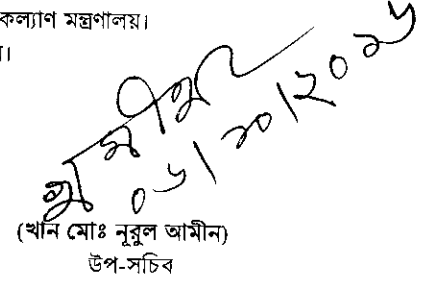 কল্যাণ মন্ত্রণালয়।
।
০৬/১০/২০১৬
(খান মোঃ নূরুল আমীন)
উপ-সচিব